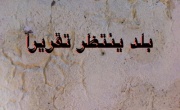 بلد ينتظر تقريرا